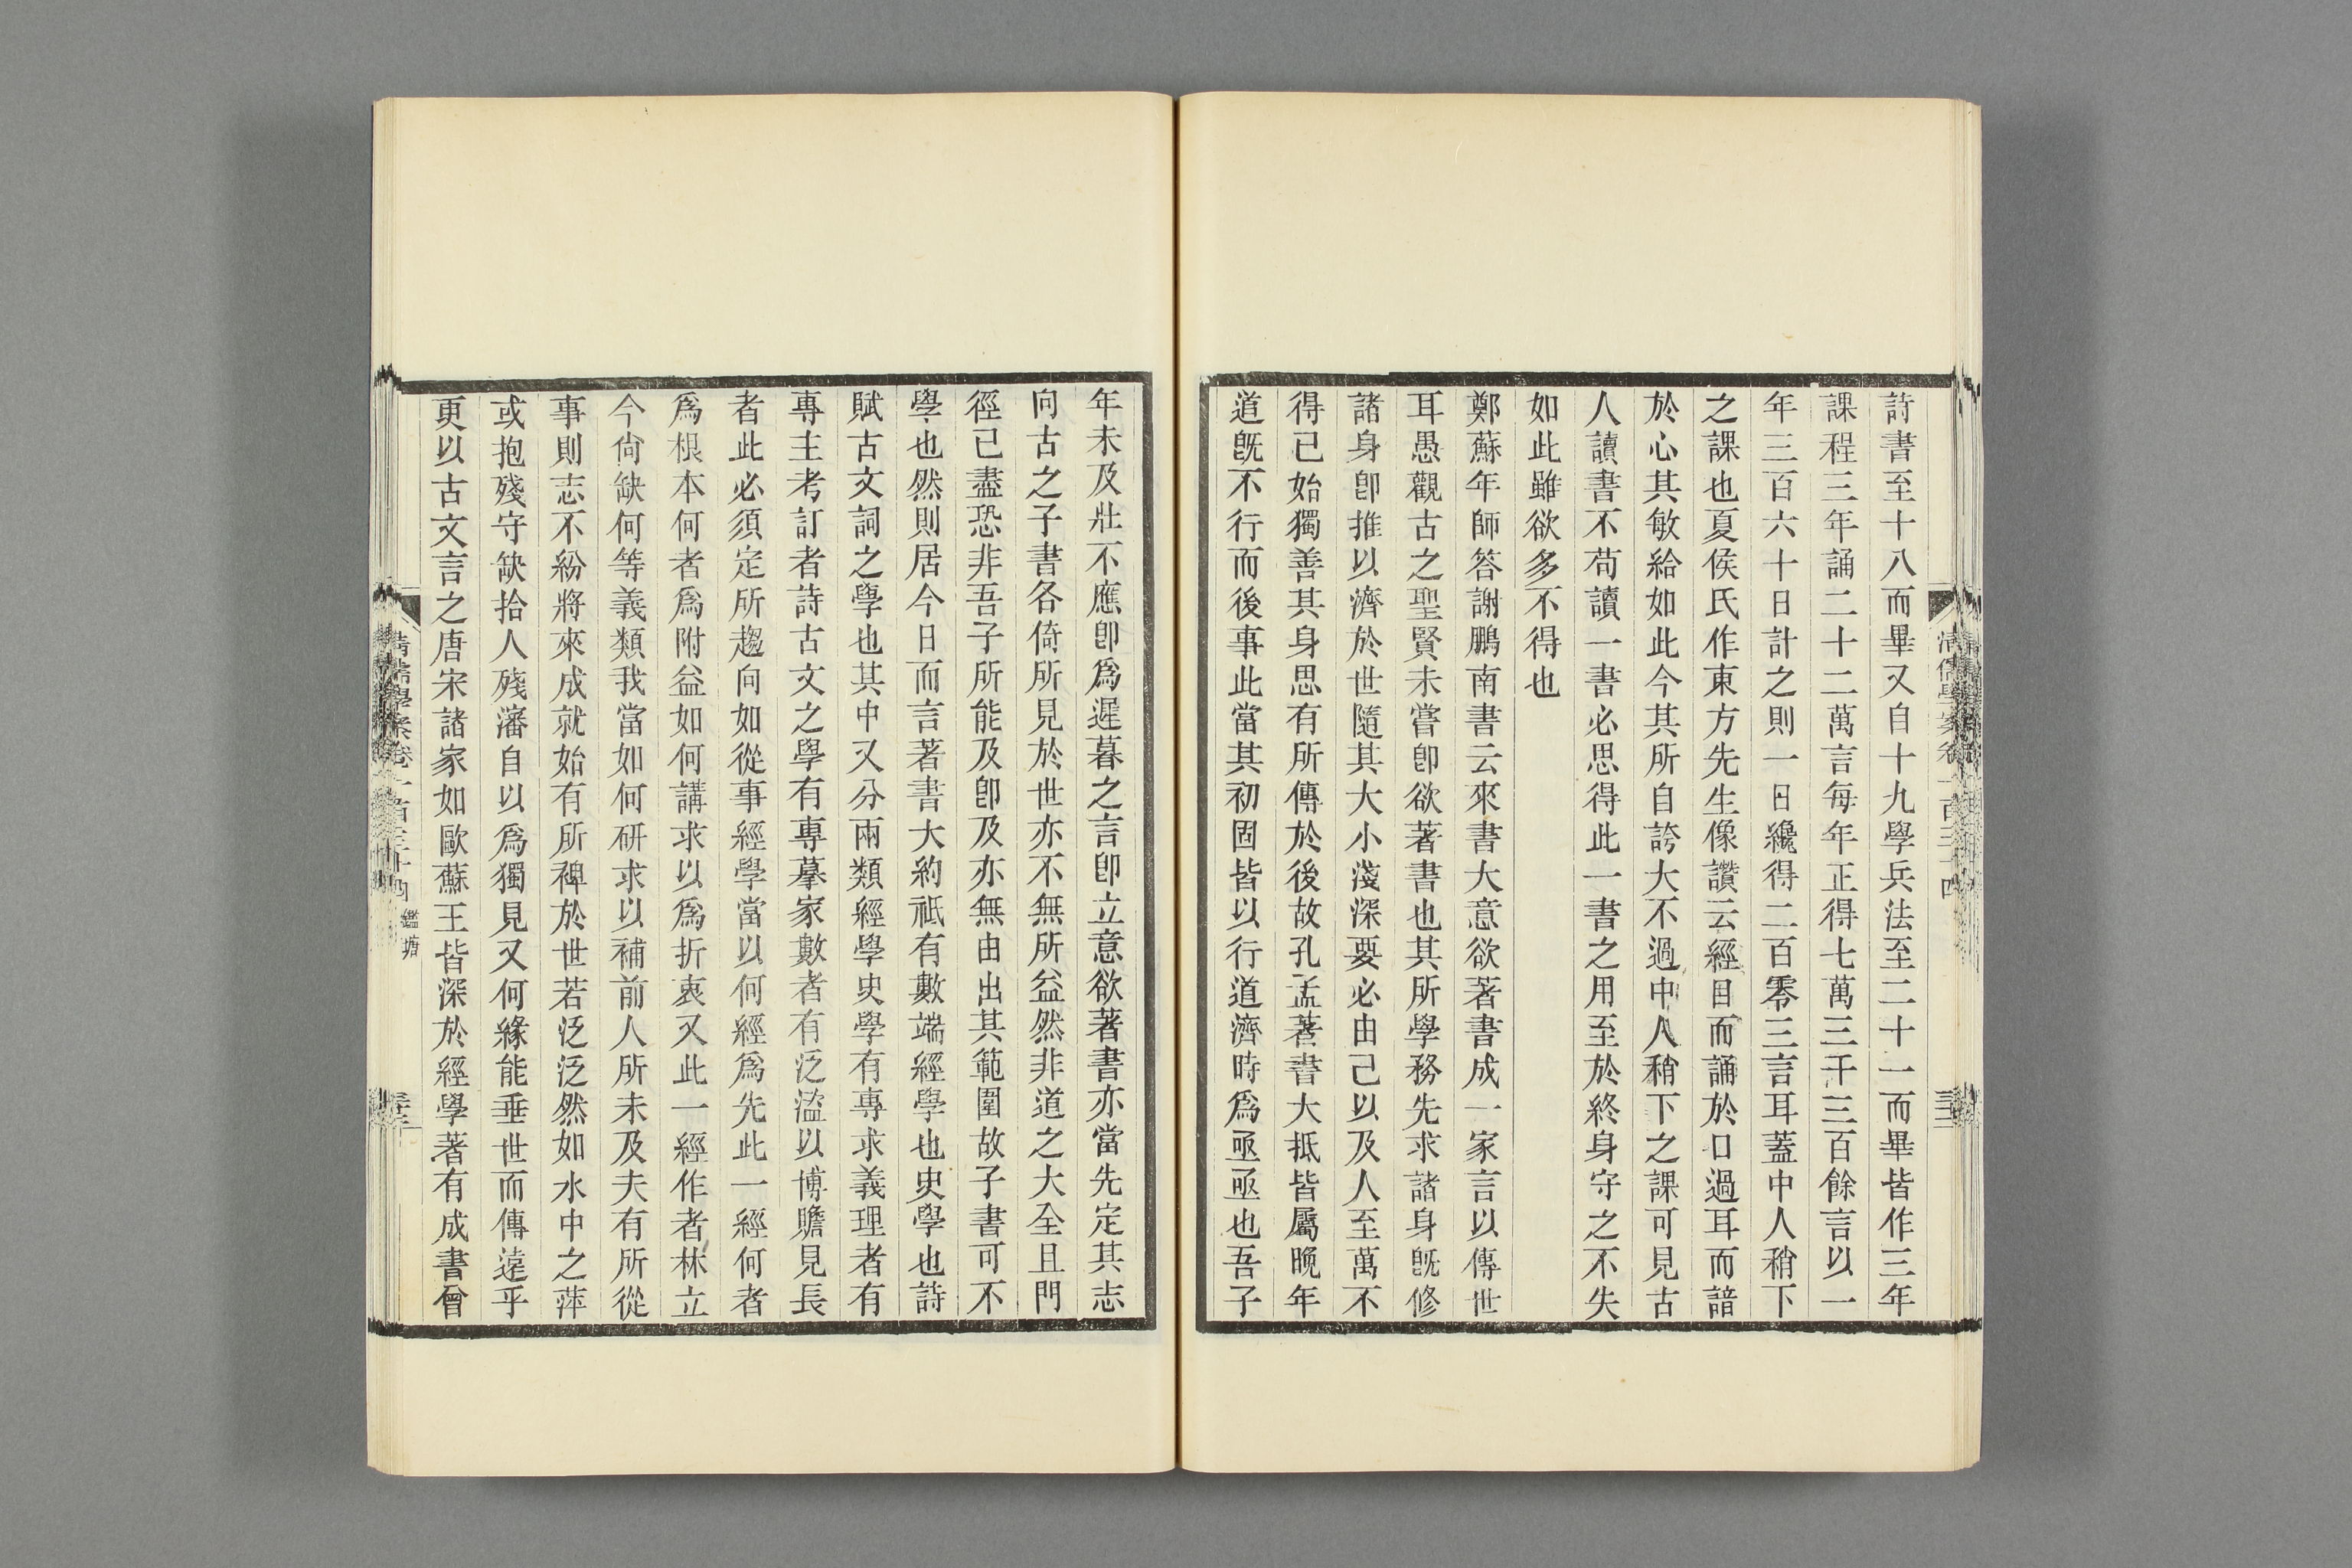 詩書至十八而畢又自十九學兵法至二十一而畢皆作三年
課程三年誦二十二萬言每年正得七萬三千三百餘言以一
年三百六十日計之則一日纔得二百零三言耳蓋中人稍下
之課也夏侯氏作東方先生像讚云經目而誦於口過耳而諳
於心其敏給如此今其所自誇大不過中人稍下之課可見古
人讀書不苟讀一書必思得此一書之用至於終身守之不失
如此雖欲多不得也
鄭蘇年師答謝鵬南書云來書大意欲著書成一家言以傳世
耳愚觀古之聖賢未嘗卽欲著書也其所學務先求諸身旣修
諸身卽推以濟於世隨其大小淺深要必由己以及人至萬不
得已始獨善其身思有所傳於後故孔孟著書大抵皆屬晚年
道旣不行而後事此當其初固皆以行道濟時爲亟亟也吾子
年未及壯不應卽爲遲暮之言卽立意欲著書亦當先定其志
向古之子書各倚所見於世亦不無所益然非道之大全且門
徑已盡恐非吾子所能及卽及亦無由出其範圍故子書可不
學也然則居今日而言著書大約祇有數端經學也史學也詩
賦古文詞之學也其中又分兩類經學史學有專求義理者有
專主考訂者詩古文之學有專摹家數者有泛濫以博贍見長
者此必須定所趨向如從事經學當以何經爲先此一經何者
爲根本何者爲附益如何講求以爲折衷又此一經作者林立
今尙缺何等義類我當如何硏求以補前人所未及夫有所從
事則志不紛將來成就始有所裨於世若泛泛然如水中之萍
或抱殘守缺拾人殘瀋自以爲獨見又何緣能垂世而傳遠乎
更以古文言之唐宋諸家如歐蘇王皆深於經學著有成書曾
清儒學案卷一百三十四